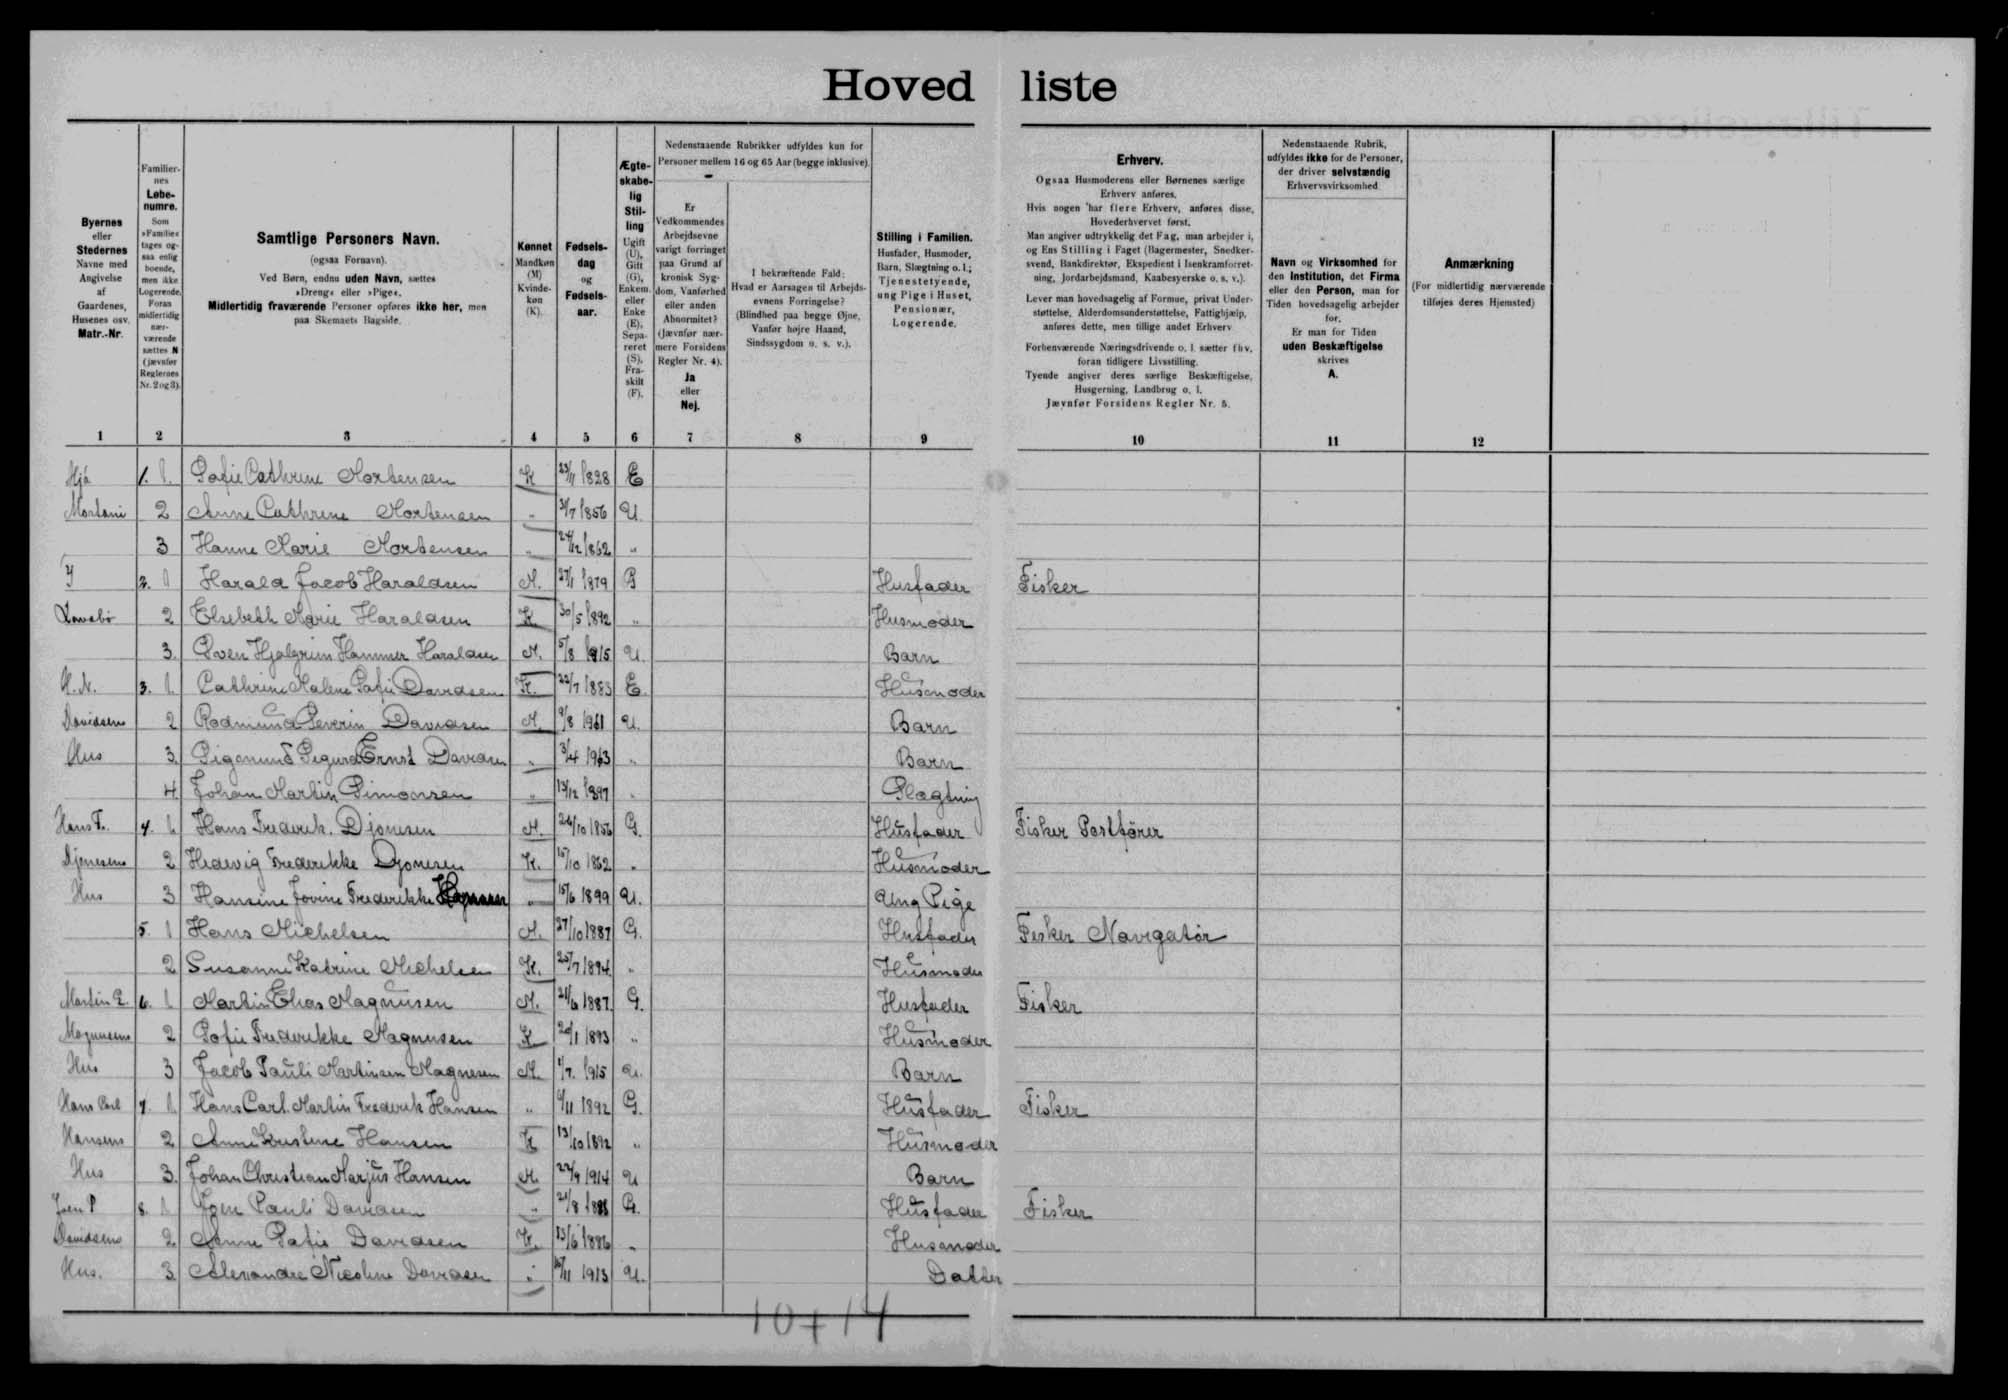 Hovedliste
Byernes eller Stedernes Navne med Angivelse af Gaardenes, Husenes osv. Matr.-Nr.
Familiernes Løbenumre. Som »Familie« tages ogsaa enlig boende, men ikke Logerende. Foran midlertidig nærværende sættes N (jævnfør Reglernes Nr. 2 og 3).
Samtlige Personers Navn. (ogsaa Fornavn). Ved Børn, endnu uden Navn, sættes »Dreng« eller »Pige«. Midlertidig fraværende Personer opføres ikke her, men paa Skemaets Bagside.
Kønnet Mandkøn (M) Kvindekøn (K).
Fødselsdag og Fødselsaar.
Ægteskabelig Stilling Ugift (U), Gift (G), Enkem. eller Enke (E), Separeret (S), Fraskilt (F).
Nedenstaaende Rubrikker udfyldes kun for Personer mellem 16 og 65 Aar (begge inklusive).
Er Vedkommendes Arbejdsevne varigt forringet paa Grund af kronisk Sygdom, Vanførhed eller anden Abnormitet? (Jævnfør nærmere Forsidens Regler Nr. 4). Ja eller Nej.
I bekræftende Fald: Hvad er Aarsagen til Arbejdsevnens Forringelse? (Blindhed paa begge Øjne, Vanfør højre Haand, Sindssygdom o. s. v.).
Stilling i Familien. Husfader, Husmoder, Barn, Slægtning o. l.; Tjenestetyende, ung Pige i Huset, Pensionær, Logerende.
Erhverv.
Ogsaa Husmoderens eller Børnenes særlige Erhverv anføres.
Hvis nogen har flere Erhverv, anføres disse, Hovederhvervet først.
Man angiver udtrykkelig det Fag, man arbejder i, og Ens Stilling i Faget (Bagermester, Snedkersvend, Bankdirektør, Ekspedient i Isenkramforretning, Jordarbejdsmand, Kaabesyerske o. s. v.).
Lever man hovedsagelig af Formue, privat Understøttelse, Alderdomsunderstøttelse, Fattighjælp, anføres dette, men tillige andet Erhverv
Forhenværende Næringsdrivende o. l. sætter fhv. foran tidligere Livsstilling.
Tyende angiver deres særlige Beskæftigelse, Husgerning, Landbrug o. l.
Jævnfør Forsidens Regler Nr. 5.
Nedenstaaende Rubrik, udfyldes ikke for de Personer, der driver selvstændig Erhvervsvirksomhed
Navn og Virksomhed for den Institution, det Firma eller den Person, man for Tiden hovedsagelig arbejder for.
Er man for Tiden uden Beskæftigelse skrives A.
Anmærkning (For midlertidig nærværende tilføjes deres Hjemsted)
1 2 3 4 5 6 7 8 9 10 11 12
Hjá 1. 1. Sofie Cathrine Mortensen K 23/11 1828 E
Mortani 2 Anne Cathrine Mortensen " 31/7 1856 U.
3 Hanne Marie Mortensen " 24/12 1862 "
Y 2. 1 Harald Jacob Haraldsen M. 27/1 1879 G Husfader Fisker
2 Elsebeth Marie Haraldsen K 30/5 1892 " Husmoder
3. Sven Hjalgrim Hammer Haraldsen M. 5/8 1915 U. Barn
3. 1. Cathrine Malene Sofie Davidsen K. 22/7 1883 E. Husmoder
Davidsens 2 Rodmund Severin Davidsen M. 9/8 U. Barn
Hus 3. Sigmund Sigurd Ernst Davidsen " 3/4 " Barn
4. Johan Martin Simonsen " 13/12 1897 " Slægtning
Hans F. 4. 1. Hans Frederik. Djonesen M. 26/10 1856 G. Husfader Fisker Postfører
Djonesens 2 Hedevig Frederikke Djonesen K. 15/10 1862 " Husmoder
Hus 3 Hansine Jovine Frederikke " 15/6 1899 U. Ung Pige
5. 1 Hans Michelsen M. 27/10 1887 G. Husfader Fisker Navigatør
2 Susanne Katrine Michelsen K. 20/7 1894 " Husmoder
Martin E. 6. 1 Martin Elias Magnusen M. 21/6 1887. G. Husfader Fisker
Magnusens 2 Sofie Frederikke Magnusen K 20/1 1893 " Husmoder
Hus 3 Jacob Pauli Martinsen Magnusen M. 1/7. 1915 U. Barn
Hans Carl 7. 1. Hans Carl. Martin Frederik Hansen " 6/11 1892 G. Husfader Fisker
Hansens 2 Anne Kristine Hansen K 13/10 1892 " Husmoder
Hus 3. Johan Christian Marjus Hansen M. 22/9 1914 U Barn
Joen P 8. 1 Joen Pauli Davidsen " 21/8 G. Husfader Fisker
Davidsens 2. Anne Sofie Davidsen K. 13/6 1886 " Husmoder
Hus. 3 Alexandra Nicoline Davidsen " 1913 U. Datter
10+14